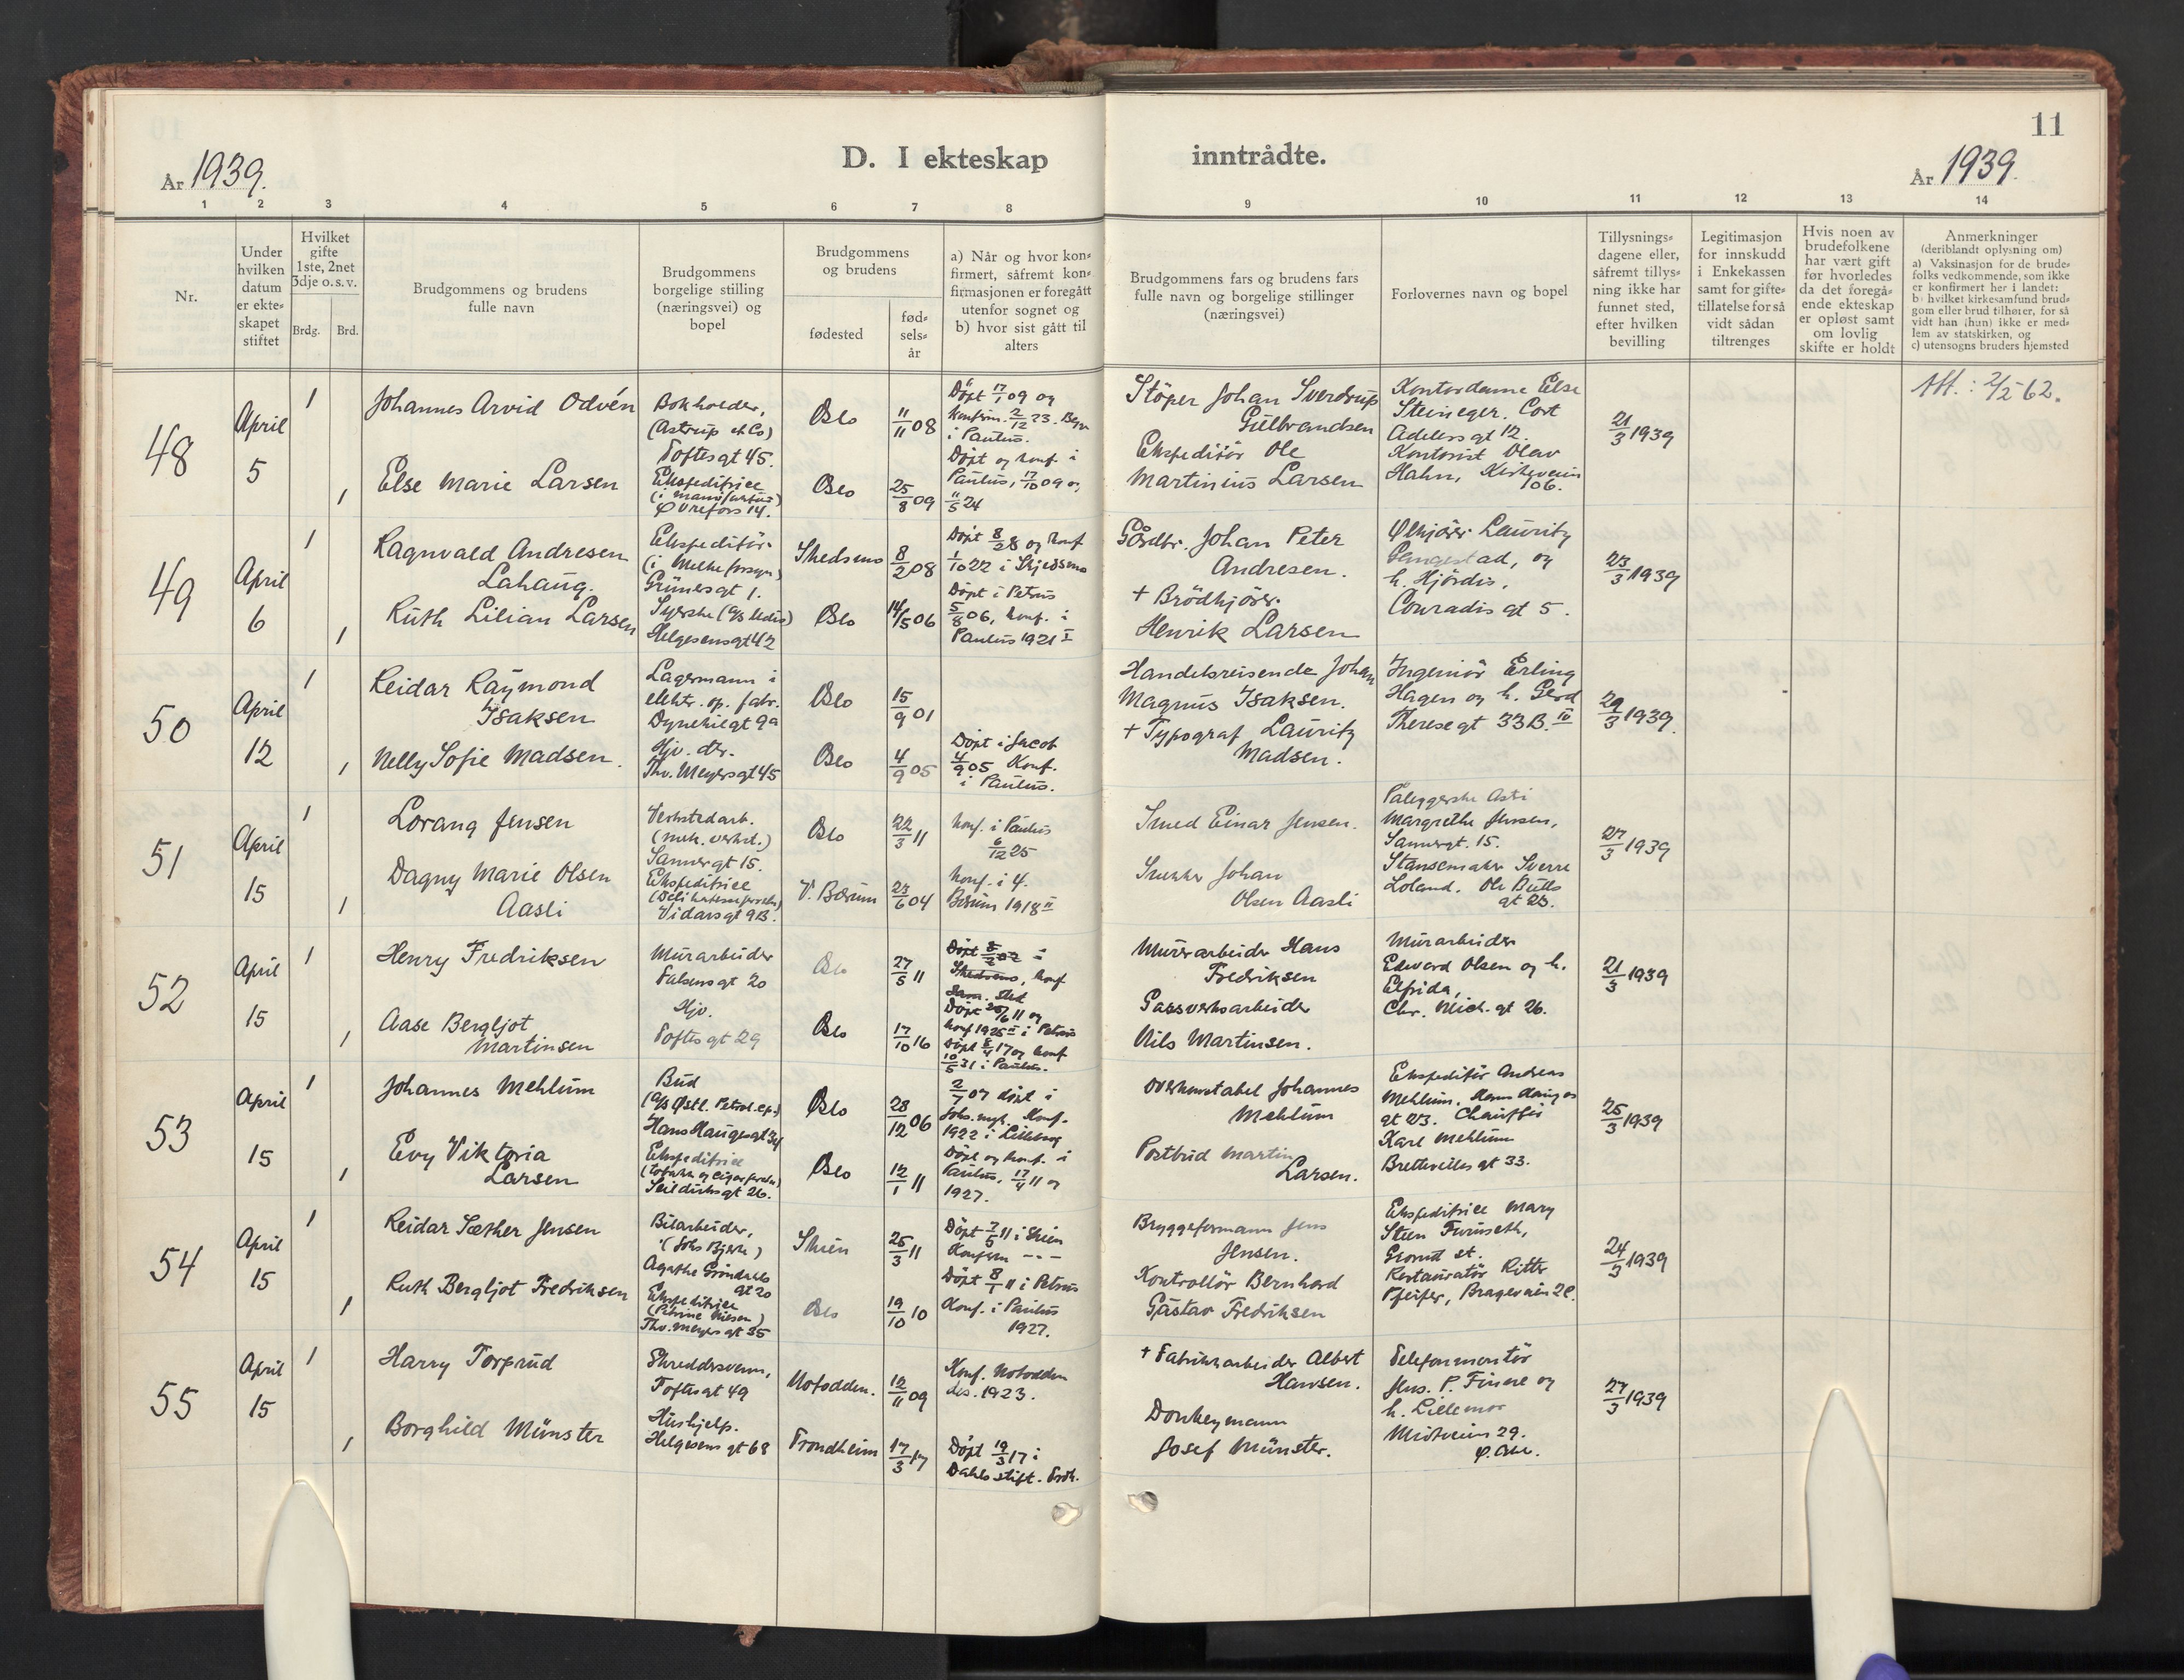 11
D. I ekteskap inntrådte.
År 1939.
År 1939.
1 2 3 4 5 6 7 8 9 10 11 12 13 14
Nr.
Under
hvilken
datum
er ekte-
skapet
stiftet
Hvilket
gifte
1ste, 2net
3dje o.s.v.
Brdg. Brd.
Brudgommens og brudens
fulle navn
Brudgommens
borgelige stilling
(næringsvei) og
bopel
Brudgommens
og brudens
fødested
fød-
sels-
år
a) Når og hvor kon-
firmert, såfremt kon-
firmasjonen er foregått
utenfor sognet og
b) hvor sist gått til
alters
Brudgommens fars og brudens fars
fulle navn og borgelige stillinger
(næringsvei)
Forlovernes navn og bopel
Tillysnings-
dagene eller,
såfremt tillys-
ning ikke har
funnet sted,
efter hvilken
bevilling
Legitimasjon
for innskudd
i Enkekassen
samt for gifte-
tillatelse for så
vidt sådan
tiltrenges
Hvis noen av
brudefolkene
har vært gift
før hvorledes
da det foregå-
ende ekteskap
er opløst samt
om lovlig
skifte er holdt
Anmerkninger
(deriblandt oplysning om)
a) Vaksinasjon for de brude-
folks vedkommende, som ikke
er konfirmert her i landet:
b) hvilket kirkesamfund brud-
gom eller brud tilhører, for så
vidt han (hun) ikke er med-
lem av statskirken, og
c) utensogns bruders hjemsted
48
April
5
1
Johannes Arvid Odvén
Bokholder,
(Astrup & Co)
Toftesgt 45.
Oslo
11/11 08
Döpt 17/1 09 og
konfirm. 2/12 23. Begge
i Paulus.
Stöper Johan Sverdrup
Gulbrandsen
Kontordame Else
Steineger, Cort
Adelers gt 12.
21/3 1939
Att.: 2/5 62.
1
Else Marie Larsen
Ekspeditrice
(i manufaktur)
Ø Vrefors 14.
Oslo
25/8 09
Döpt og konf. i
Paulus, 17/10 09 og
11/5 24
Ekspeditör Ole
Martinius Larsen
Kontorist Olav
Hahn, Kirkeveien
106.
49
April
6
1
Ragnvald Andresen
Lahaug.
Ekspeditör
(i Melkeforsyn.)
Grünersgt 1.
Skedsmo
8/2 08
Döpt 8/3 8 og konf
1/10 22 i Skjedsmo
Gårdbr. Johan Peter
Andresen.
Ølkjörer Lauritz
Langestad, og
h. Hjördis,
Conradis gt 5.
23/3 1939
1
Ruth Lilian Larsen
Syerske
Helgesensgt 42
Oslo
14/5 06
Döpt i Petrus
5/8 06, konf. i
Paulus 1921 I
+ Brödkjörer
Henrik Larsen
50
April
12
1
Reidar Raymond
Isaksen
Lagermann i
elektr. op. fabr.
Dynekilgt 9a
Oslo
15/9 01
Handelsreisende Johan
Magnus Isaksen.
Ingeniör Erling
Hagen og h. Gerd
Theresegt 33B. IV
29/3 1939.
1
Nelly Sofie Madsen.
Hjv. dtr.
Thv. Meyersgt 45
Oslo
4/9 05
Döpt i Jacob
4/9 05 Konf.
i Paulus.
+ Typograf Lauritz
Madsen.
51
April
15
1
Lorang Jensen
Verkstedarb.
(mek. verkst.)
Sannergt 15.
Oslo
22/3 11
konf. i Paulus
6/12 25
Smed Einar Jensen.
Påleggerske Asti
Margrethe Jensen,
Sannergt. 15.
27/3 1939
1
Dagny Marie Olsen
Aasli
Ekspeditrice
Vidarsgt 9B.
V. Bærum
23/6 04
konf. i V.
Bærum 1918 II
Snekker Johan
Olsen Aasli
Stansemaker Sverre
Loland. Ole Bulls
gt 23.
52
April
15
1
Henry Fredriksen
Murarbeider
Falsensgt 20
Oslo
27/5 11
Skedsmo, konf
Döpt 25/6 11 og
konf 1925 II i Petrus
Murerarbeider Hans
Fredriksen
Murarbeider
Edvard Olsen og h.
Elfrida,
Chr. Mich. gt 26.
21/3 1939
1
Aase Bergljot
Martinsen
Hjv.
Toftesgt 29
Oslo
17/10 16
Döpt 8/4 17 og konf
10/5 31 i Paulus.
Gassverksarbeider
Nils Martinsen.
53
April
15
1
Johannes Mehlum
Bud
(A/S Østl. Petrol. cp.)
Hans Haugesgt 34
Oslo
28/12 06
2/7 07 döpt i
Konf.
1922 i Lilleborg
Overkonstabel Johannes
Mehlum
Ekspeditör Andreas
Mehlum, Hans Hauges
gt 23. Chaufför
Karl Mehlum
Brettevilles gt 33.
25/3 1939
1
Evy Viktoria
Larsen
Ekspeditrice
Seildukesgt 26.
Oslo
12/1 11
Döpt og konf. i
Paulus, 17/4 11 og
1927.
Postbud Martin
Larsen.
54
April
15
1
Reidar Sæther Jensen
Bilarbeider,
(Johs Bjerke)
Agathe Gröndahls
gt 20
Skien
25/3 11
Döpt 7/5 11 i Skien
Konfirm - - -
Bryggeformann Jens
Jensen.
Ekspeditrice Mary
Steen Furuseth,
Grorud st.
Restauratör Ritter
Pfeifer, Brageveien 2C.
24/3 1939
1
Ruth Bergljot Fredriksen
Ekspeditrice
(Petrine Nilsen)
Thv. Meyers gt 35
Oslo
19/10 10
Döpt 8/1 11 i Petrus
Konf. i Paulus
1927.
Kontrollör Bernhard
Gustav Fredriksen
55
April
15
1
Harry Torprud
Skreddersvenn,
Toftesgt 49
Notodden.
12/11 09
Konf. Notodden
des. 1923.
+ Fabrikkarbeider Albert
Hansen.
Telefonmontör
Jens. P. Finne og
h. Lillemor
Midtveien 29.
Ø. Aker.
27/3 1939
1
Borghild Münster
Hushjelp.
Helgesens gt 68
Trondheim
17/3 17
Döpt 19/3 17 i
Dahls stift. Trdh.
Donkeymann
Josef Münster.